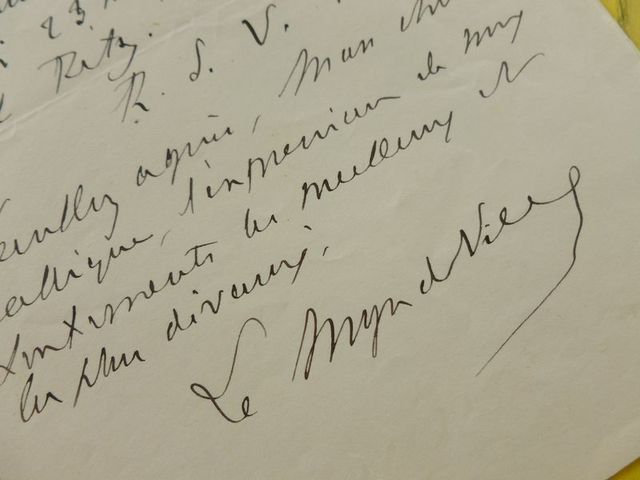 23
Ritz.
R. S. V.
Veuillez agréer, Mon cher
collègue, l'expression de mes
sentiments les meilleurs et
les plus dévoués.
Le Myre de Vilers